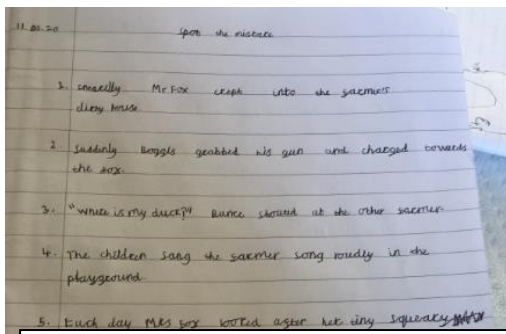 11.01.20 Spot the mistake
1. sneakily Mr Fox crept into the farmer's
dirty house.
2. Suddenly Boggis grabbed his gun and charged towards
the fox.
3. "Where is my duck?" Bunce shouted at the other farmer.
4. The children sang the farmer song loudly in the
playground.
5. Each day Mrs Fox looked after her tiny squeaky